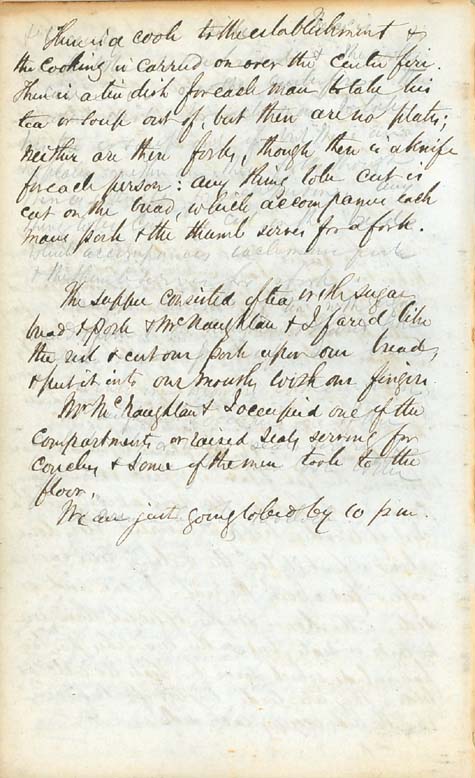 There is a cook to the establishment &
the cooking is carried on over the centre fire.
There is a tin dish for each man to take his
tea or soup out of, but there are no plates;
neither are there forks, though there is a knife
for each person: any thing to be cut is
cut on the bread, which accompanies each
mans pork & the thumb serves for a fork.
The supper consisted of tea with sugar
bread & pork & Mr McNaughtan & I fared like
the rest & cut our pork upon our bread,
& put it into our mouths with our fingers.
Mr McNaughtan & I occupied one of the
compartments or raised seats serving for
couches & some of the men took to the
floor.
We are just going to bed by 10 p m.